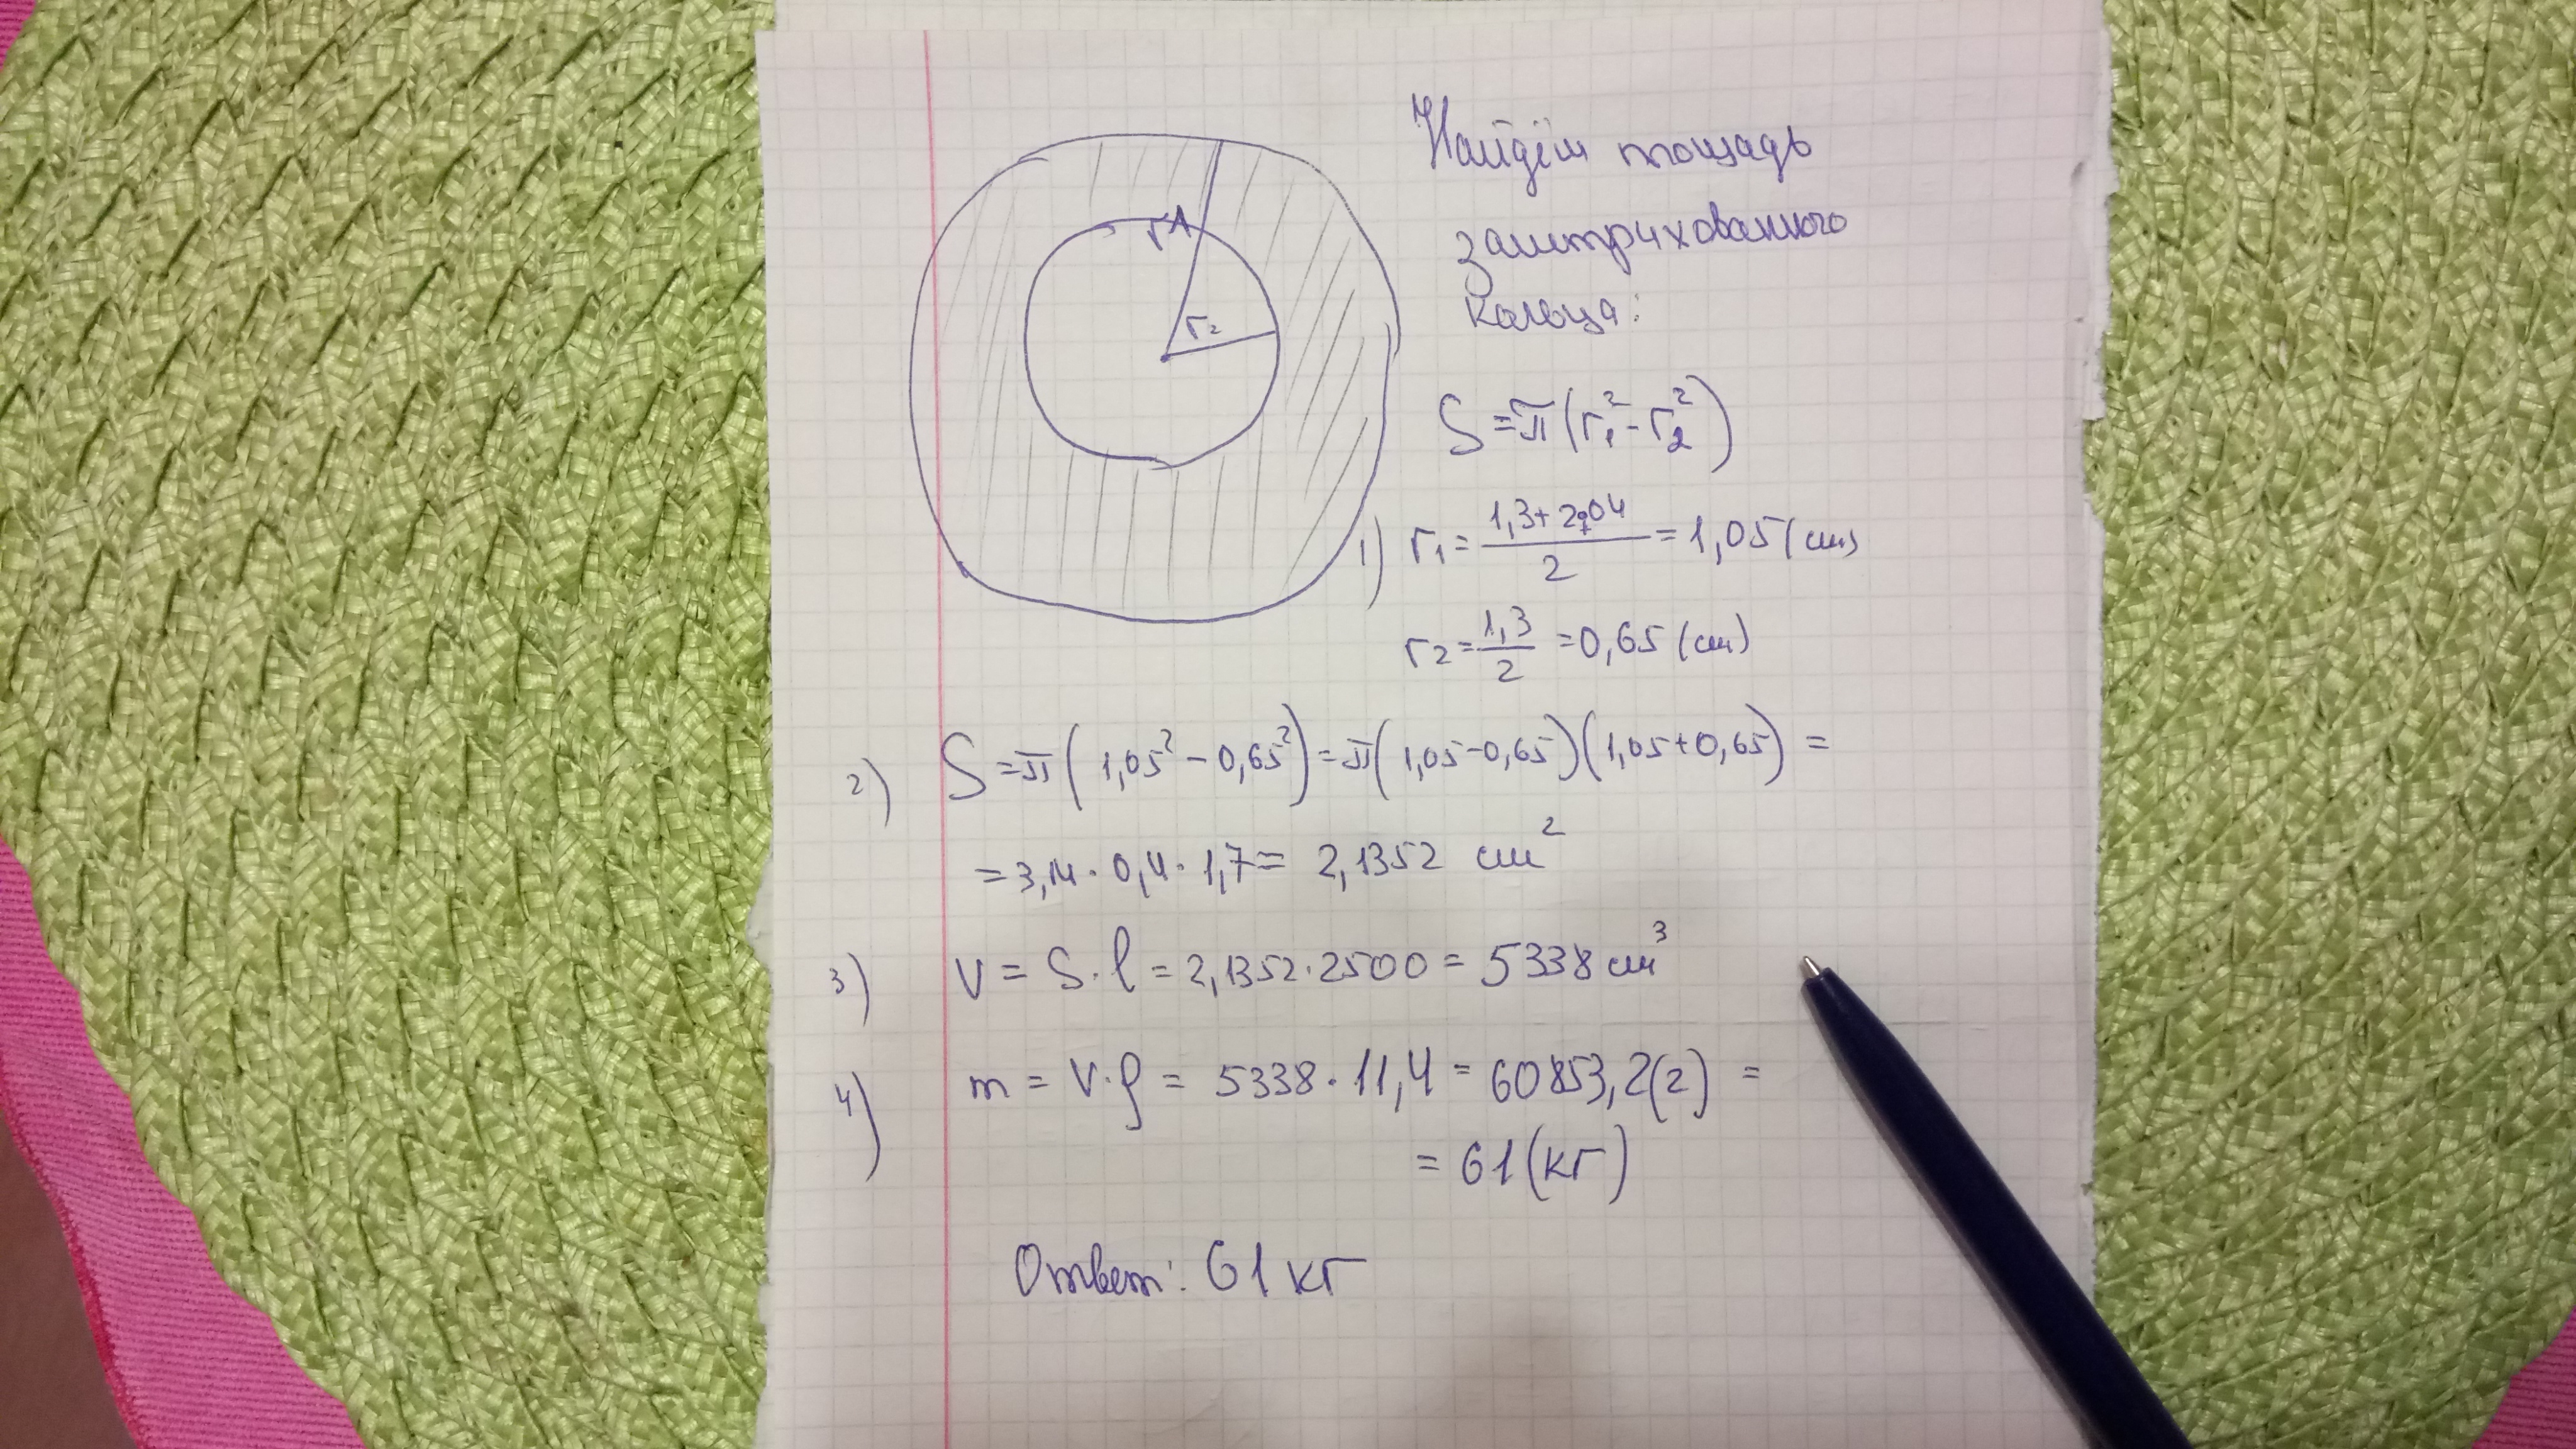 Найдём площадь
r1
заштрихованного
кольца:
r2
S = π(r₁² - r₂²)
1) r₁ = (1,3 + 2·0,4)/2 = 1,05 (см)
r₂ = 1,3/2 = 0,65 (см)
2) S = π(1,05² - 0,65²) = π(1,05 - 0,65)(1,05 + 0,65) =
= 3,14 · 0,4 · 1,7 = 2,1352 см²
3) V = S · l = 2,1352 · 2500 = 5338 см³
4) m = V · ρ = 5338 · 11,4 = 60853,2 (г) =
= 61 (кг)
Ответ: 61 кг